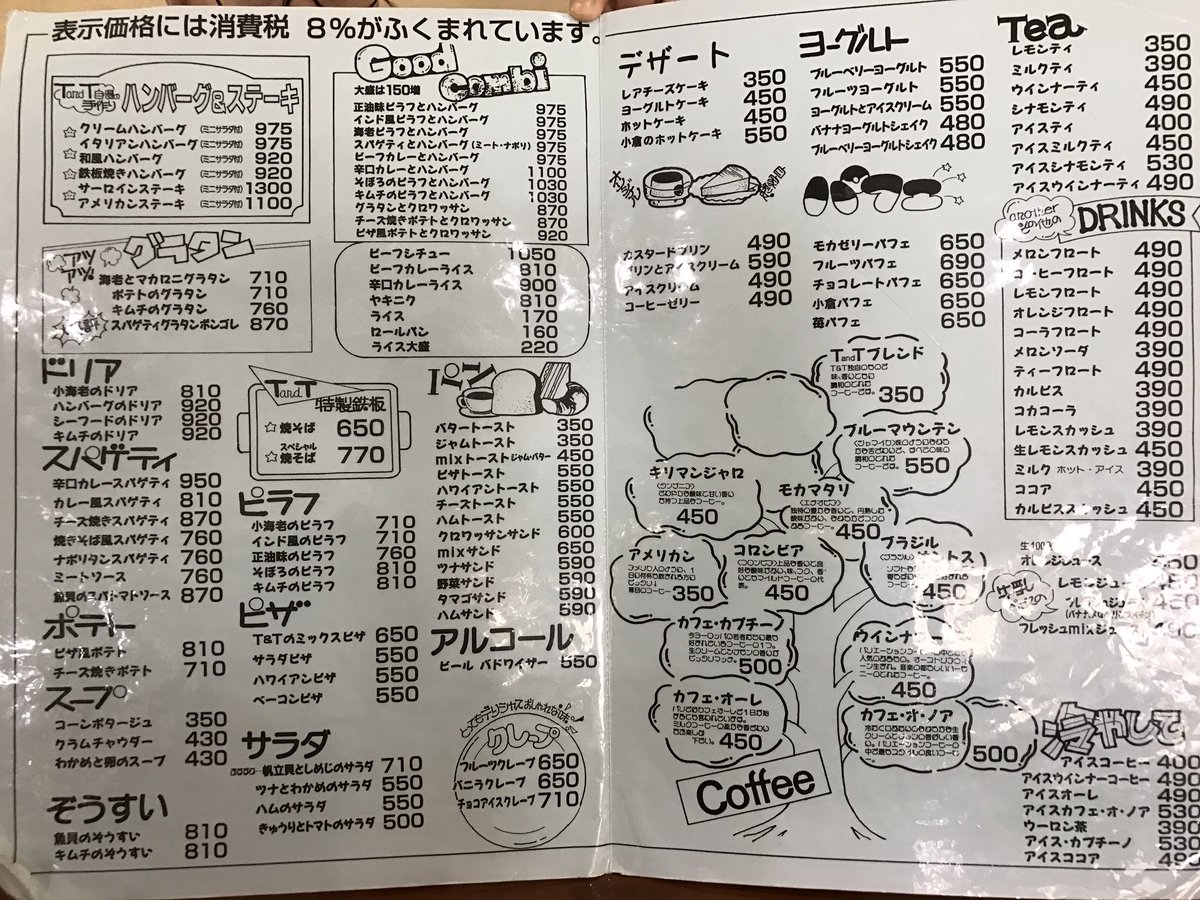 表示価格には消費税 8%がふくまれています。
TandT自慢の手作り ハンバーグ&ステーキ
☆クリームハンバーグ (ミニサラダ付) 975
☆イタリアンハンバーグ (ミニサラダ付) 975
☆和風ハンバーグ (ミニサラダ付) 920
☆鉄板焼きハンバーグ (ミニサラダ付) 920
☆サーロインステーキ (ミニサラダ付) 1300
☆アメリカンステーキ (ミニサラダ付) 1100
アツアツ! グラタン
海老とマカロニグラタン 710
ポテトのグラタン 710
キムチのグラタン 760
スパゲティグラタンボンゴレ 870
ドリア
小海老のドリア 810
ハンバーグのドリア 920
シーフードのドリア 920
キムチのドリア 920
スパゲティ
辛口カレースパゲティ 950
カレー風スパゲティ 810
チーズ焼きスパゲティ 870
焼きそば風スパゲティ 760
ナポリタンスパゲティ 760
ミートソース 760
魚貝のスパトマトソース 870
ポテト
ピザ風ポテト 810
チーズ焼きポテト 710
スープ
コーンポタージュ 350
クラムチャウダー 430
わかめと卵のスープ 430
ぞうすい
魚貝のぞうすい 810
キムチのぞうすい 810
TandT 特製鉄板
☆焼そば 650
☆スペシャル焼そば 770
ピラフ
小海老のピラフ 710
インド風のピラフ 710
正油味のピラフ 760
そぼろのピラフ 810
キムチのピラフ 810
ピザ
T&Tのミックスピザ 650
サラダピザ 550
ハワイアンピザ 550
ベーコンピザ 550
サラダ
帆立貝としめじのサラダ 710
ツナとわかめのサラダ 550
ハムのサラダ 550
きゅうりとトマトのサラダ 500
Good Combi
大盛は150増
正油味ピラフとハンバーグ 975
インド風ピラフとハンバーグ 975
海老ピラフとハンバーグ 975
スパゲティとハンバーグ(ミート・ナポリ) 975
ビーフカレーとハンバーグ 975
辛口カレーとハンバーグ 1100
そぼろのピラフとハンバーグ 1030
キムチのピラフとハンバーグ 1030
グラタンとクロワッサン 870
チーズ焼きポテトとクロワッサン 870
ピザ風ポテトとクロワッサン 920
ビーフシチュー 1050
ビーフカレーライス 810
辛口カレーライス 900
ヤキニク 810
ライス 170
ロールパン 160
ライス大盛 220
パン
バタートースト 350
ジャムトースト 350
mixトースト ジャム・バター 450
ピザトースト 550
ハワイアントースト 550
チーズトースト 550
ハムトースト 550
クロワッサンサンド 600
mixサンド 590
ツナサンド 590
野菜サンド 590
タマゴサンド 590
ハムサンド 590
アルコール
ビール バドワイザー 550
クレープ
フルーツクレープ 650
バニラクレープ 650
チョコアイスクレープ 710
デザート
レアチーズケーキ 350
ヨーグルトケーキ 450
ホットケーキ 450
小倉のホットケーキ 550
カスタードプリン 490
プリンとアイスクリーム 590
アイスクリーム 490
コーヒーゼリー 490
ヨーグルト
ブルーベリーヨーグルト 550
フルーツヨーグルト 550
ヨーグルトとアイスクリーム 550
バナナヨーグルトシェイク 480
ブルーベリーヨーグルトシェイク 480
モカゼリーパフェ 650
フルーツパフェ 690
チョコレートパフェ 650
小倉パフェ 650
苺パフェ 650
TandTブレンド
350
ブルーマウンテン
550
キリマンジャロ
450
モカマタリ
450
アメリカン
350
コロンビア
450
ブラジル
450
カフェ・カプチーノ
500
450
カフェ・オーレ
450
カフェ・オ・ノア
500
Coffee
Tea
レモンティ 350
ミルクティ 390
ウインナーティ 450
シナモンティ 490
アイスティ 400
アイスミルクティ 450
アイスシナモンティ 530
アイスウインナーティ 490
another その他の DRINKS
メロンフロート 490
コーヒーフロート 490
レモンフロート 490
オレンジフロート 490
コーラフロート 490
メロンソーダ 390
ティーフロート 490
カルピス 390
コカコーラ 390
レモンスカッシュ 390
生レモンスカッシュ 450
ミルク ホット・アイス 390
ココア 450
カルピススカッシュ 450
冷やして
アイスコーヒー 400
アイスウインナーコーヒー 490
アイスオーレ 490
アイスカフェ・オ・ノア 530
ウーロン茶 390
アイス・カプチーノ 530
アイスココア 490